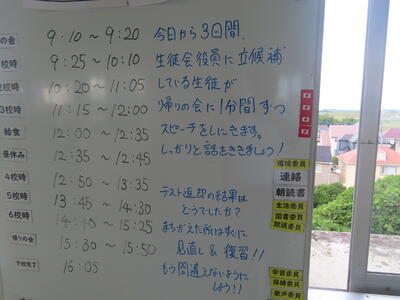 の会 9:10～9:20
校時 9:25～10:10
2校時 10:20～11:05
3校時 11:15～12:00
給食 12:00～12:35
昼休み 12:35～12:45
4校時 12:50～13:35
5校時 13:45～14:30
6校時 14:40～15:25
帰りの会 15:30～15:50
下校完了 16:05
今日から3日間、
生徒会役員に立候補
している生徒が
帰りの会に1分間ずつ
スピーチをしにきます。
しっかりと話をききましょう!
テスト返却の結果は
どうでしたか?
まちがえた所はすぐに
見直し & 復習!!
もう間違えないように
しよう!!
環境委員
連絡
朝読書
生活委員
図書委員
放送委員
学習委員
保健委員
歌声委員